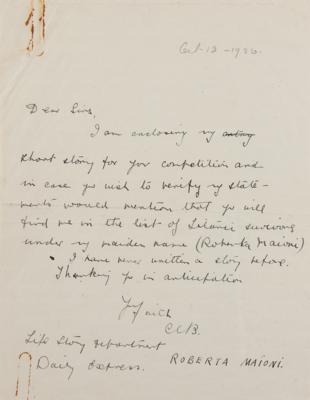 Oct - 12 - 1926.
Dear Sirs,
I am enclosing my
short story for your competition and
in case you wish to verify my state-
ments would mention that you will
find me in the list of Titanic survivors
under my maiden name (Roberta Maioni)
I have never written a story before.
Thanking you in anticipation
Life Story Department
Daily Express.
ROBERTA MAIONI.